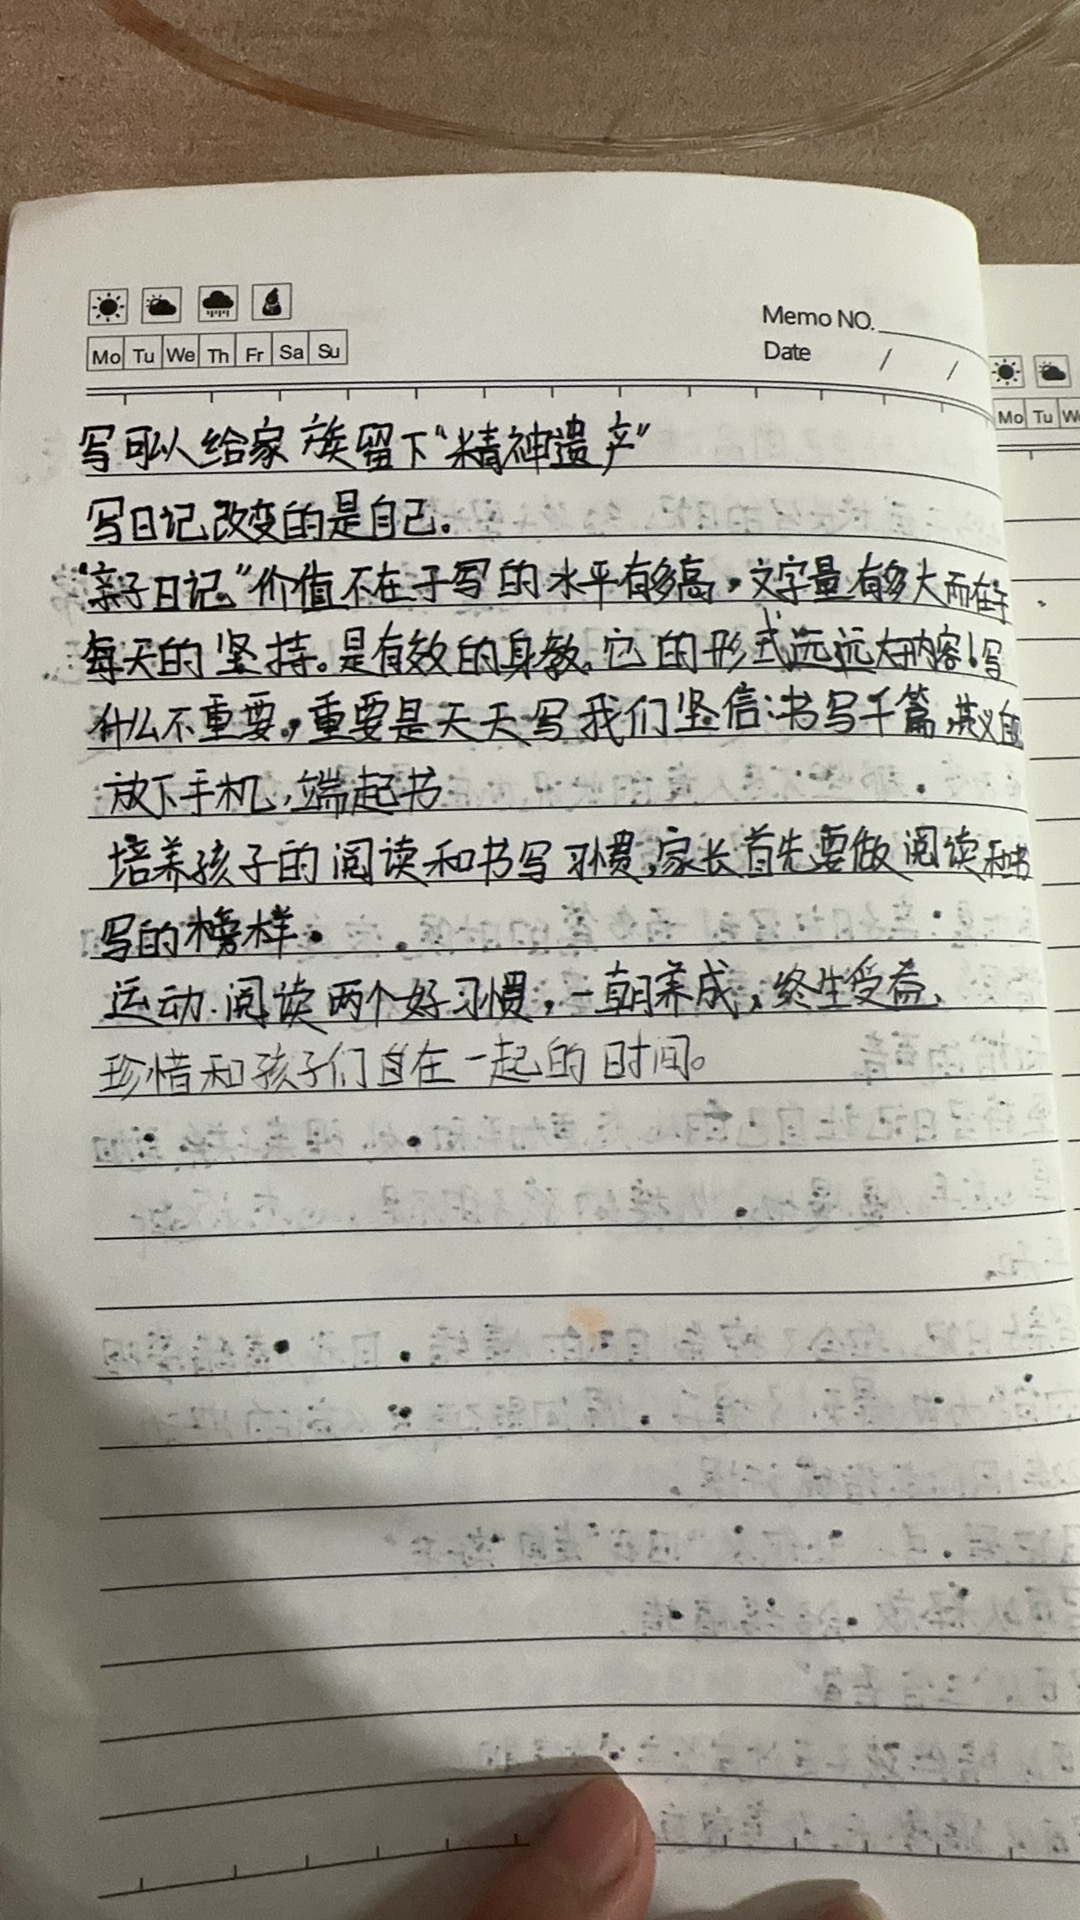 Memo NO.
Mo Tu We Th Fr Sa Su
Date / /
Mo Tu We
写可以给家族留下“精神遗产”
写日记改变的是自己.
“亲子日记”价值不在于写的水平有多高,文字量有多大而在于
每天的坚持。是有效的身教,它的形式远远大于内容!写
什么不重要,重要是天天写我们坚信:书写千篇,其义自
放下手机,端起书
培养孩子的阅读和书写习惯,家长首先要做阅读和书
写的榜样.
运动.阅读两个好习惯,一朝养成,终生受益、
珍惜和孩子们自在一起的时间。